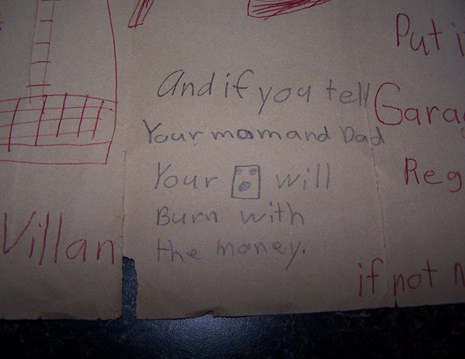 And if you tell
Your mom and Dad
Your will
Burn with
the money.
Villan
Put i
Garag
Reg
if not N